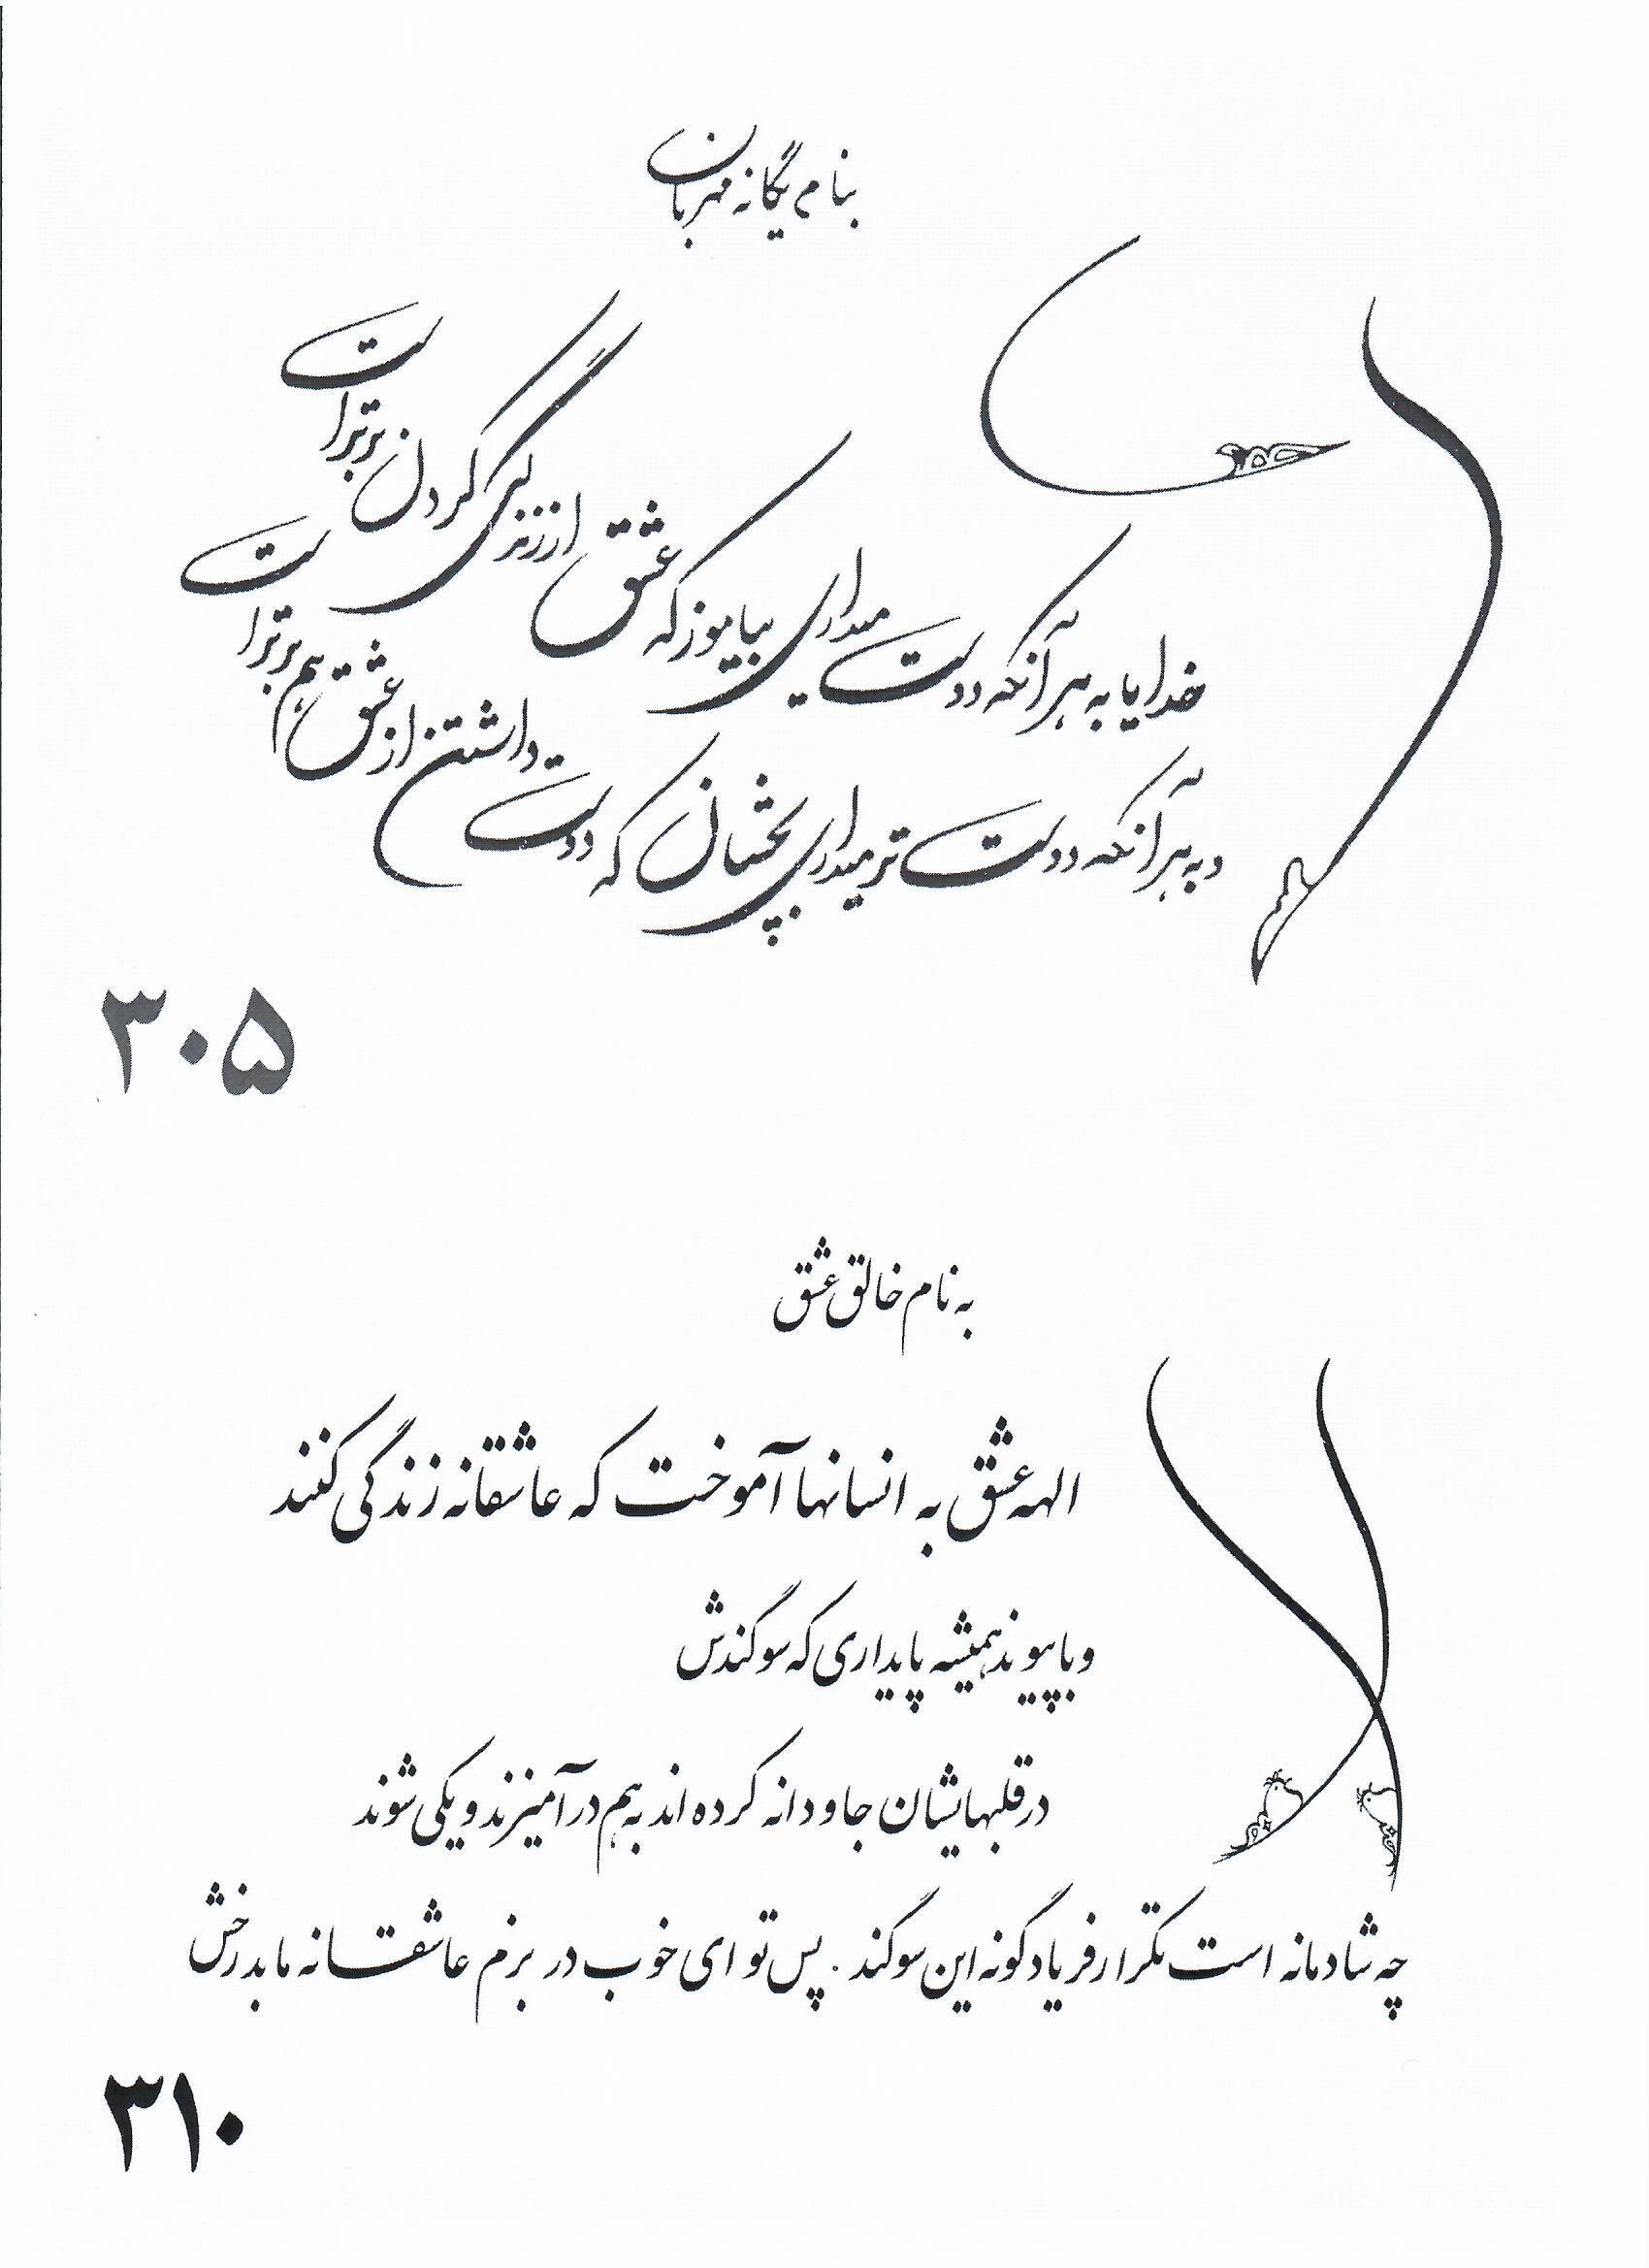 بنام یگانه مهربان
خدایا به هر آنکه دوست میداری بیاموز که عشق از زندگی کردن برتر است
و به هر آنکه دوست تر میداری بچشان که دوست داشتن از عشق هم برتر است
۳۰۵
به نام خالق عشق
الهه عشق به انسانها آموخت که عاشقانه زندگی کنند
و با پیوند همیشه پایداری که سوگندش
در قلبهایشان جاودانه کرده اند به هم در آمیزند و یکی شوند
چه شادمانه است تکرار فریاد گونه این سوگند . پس تو ای خوب در بزم عاشقانه ما بدرخش
۳۱۰